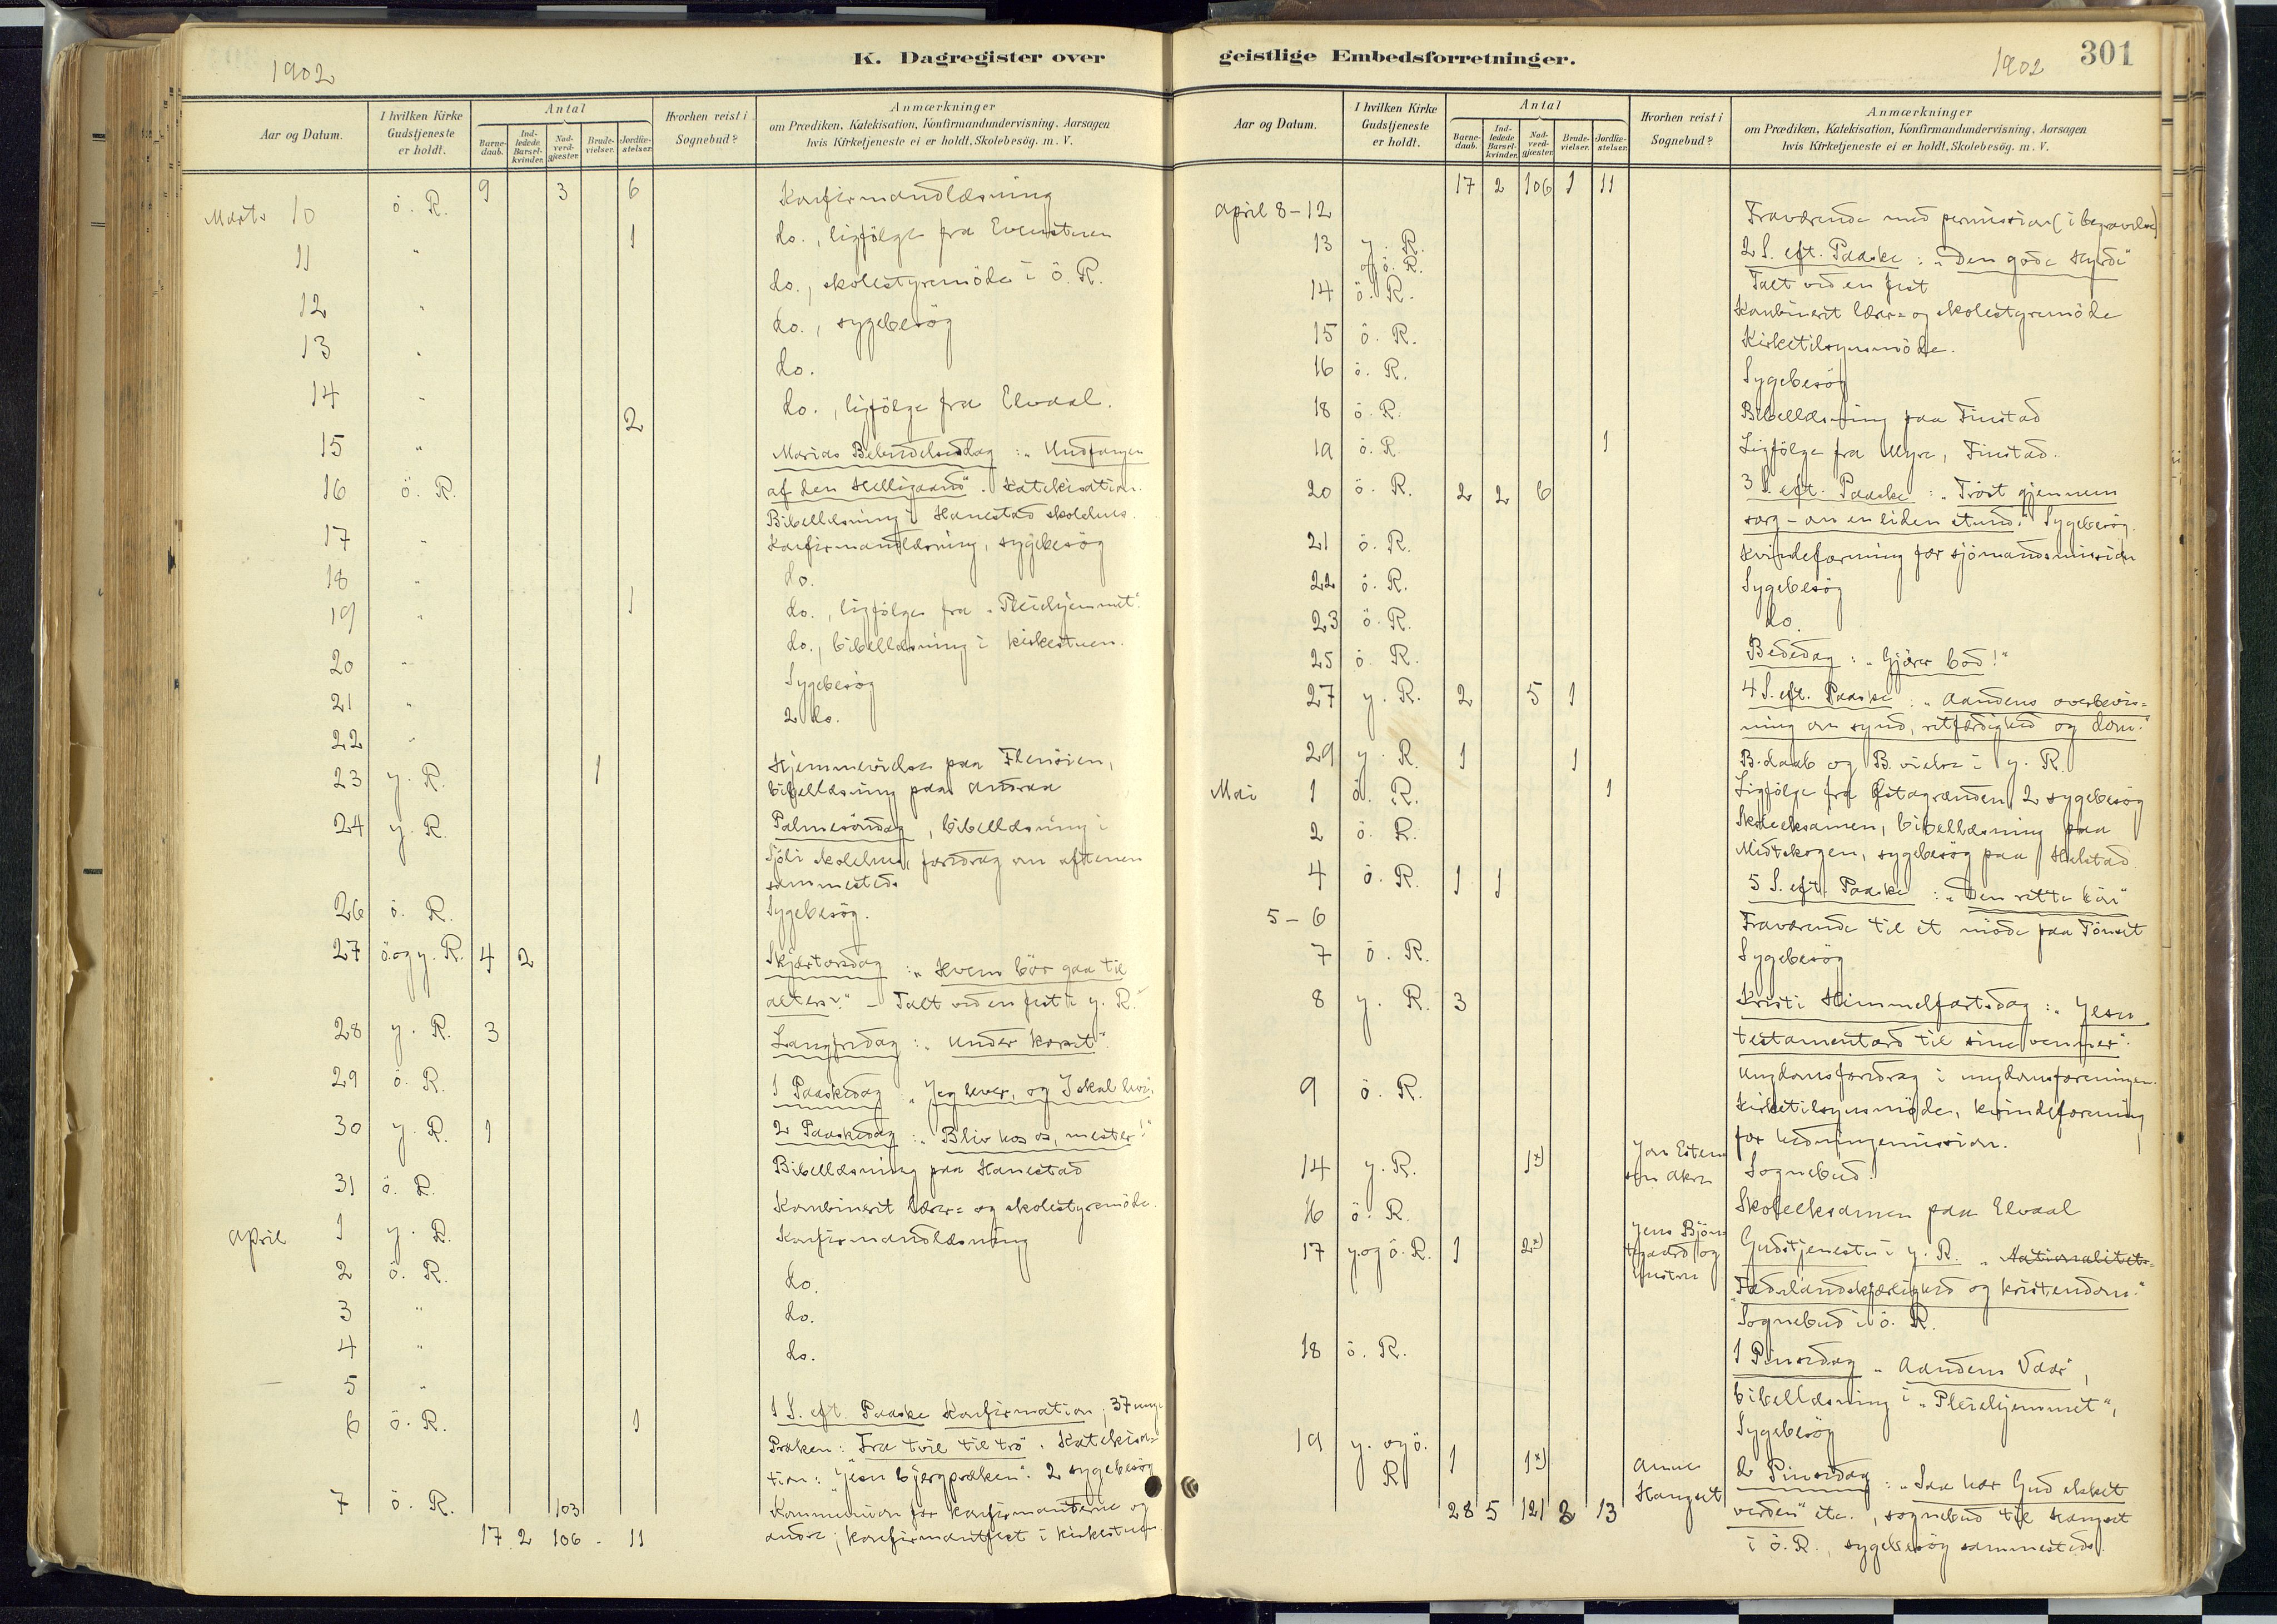 1902
K. Dagregister over
Aar og Datum.
I hvilken Kirke Gudstjeneste er holdt.
Antal
Barne-daab.
Ind-ledede Barsel-kvinder.
Nad-verd-gjæster.
Brude-vielser.
Jordfæ-stelser.
Hvorhen reist i Sognebud?
Anmærkninger
om Prædiken, Katekisation, Konfirmandundervisning, Aarsagen
hvis Kirketjeneste ei er holdt, Skolebesög. m. V.
Marts 10 ö. R. 9 3 6 Konfirmandlæsning
11 " 1 do., ligfölge fra Evenstuen
12 " do., skolestyremöde i ö. R.
13 " do., sygebesög
14 " do.
15 " 2 do., ligfölge fra Elvaal.
16 ö. R. Marias Bebudelsesdag: „Undfangen
af den Helligaand". Katekisation.
Bibellæsning i Hanestad skolehus.
17 " Konfirmandlæsning, sygebesög
18 " do.
19 " 1 do., ligfölge fra „Pleiehjemmet".
20 " do., bibellæsning i kirkestuen.
21 " Sygebesög
22 " 2 do.
23 y. R. 1 Hjemmevielse paa
bibellæsning paa Andraa
24 y. R. Palmesöndag, bibellæsning i
Sjöli skolehus, foredrag om aftenen
sammesteds
26 ö. R. Sygebesög.
27 ö. og y. R. 4 2 Skjærtorsdag: „Hvem bör gaa til
alters?" – Talt ved en fest i y. R.
28 y. R. 3 Langfredag: „Under korset".
29 ö. R. 1 Paaskedag: „Jeg lever, og I skal leve".
30 y. R. 1 2 Paaskedag: „Bliv hos os, mester!"
Bibellæsning paa Hanestad
31 ö. R. Kombineret lærer= og skolestyremöde.
April 1 y. R. Konfirmandlæsning
2 ö. R. do.
3 " do.
4 " do.
5 "
6 ö. R. 1 1 S. eft. Paaske Konfirmation; 37 unge
Præken: Fra tvil til tro. Katekisa=
tion: „Jesu bjergpræken". 2 sygebesög
7 ö. R. 103 Kommunion for konfirmanterne og
andre; konfirmantfest i kirkestuen.
17 2 106 - 11
geistlige Embedsforretninger.
1902
301
Aar og Datum.
I hvilken Kirke Gudstjeneste er holdt.
Antal
Barne-daab.
Ind-ledede Barsel-kvinder.
Nad-verd-gjæster.
Brude-vielser.
Jordfæ-stelser.
Hvorhen reist i Sognebud?
Anmærkninger
om Prædiken, Katekisation, Konfirmandundervisning, Aarsagen
hvis Kirketjeneste ei er holdt, Skolebesög. m. V.
17 2 106 1 11
April 8–12 Fraværende med permission (i begravelse)
13 y. R. ö. R. 2 S. eft. Paaske: „Den gode hyrde"
Talt ved en fest
14 ö. R. Kombinert lærer= og skolestyremöde
15 ö. R. Kirketilsynsmöde.
16 ö. R. Sygebesög
18 ö. R. Bibellæsning paa Finstad
19 ö. R. 1 Ligfölge fra Myre, Finstad.
20 ö. R. 2 2 6 3 S. eft. Paaske: „Tröst gjennem
sorg – om en liden stund." Sygebesög.
21 ö. R. Kvindeforening for sjömandsmission
22 ö. R. Sygebesög
23 ö. R. do.
25 ö. R. Bededag: „Gjörer bod!"
27 y. R. 2 5 1 4 S. eft. Paaske: „Aandens overbevis=
ning om synd, retfærdighed og dom."
29 y. R. 1 1 B. daab og B. vielse i y. R.
Mai 1 ö. R. 1 Ligfölge fra 2 sygebesög
2 ö. R. Skoleeksamen, bibellæsning paa
Midtskogen, sygebesög paa
4 ö. R. 1 1 5 S. eft. Paaske: „Den rette bön"
5–6 Fraværende til et möde paa Tönset
7 ö. R. Sygebesög
8 y. R. 3 Kristi Himmelfartsdag: „Jesu
testamentord til sine venner".
9 ö. R. Ungdomsforedrag i ungdomsforeningen.
Kirketilsynsmöde, kvindeforening
for hedningemission.
14 y. R. 1*) Jon Esten
sen Akre Sognebud.
16 ö. R. Skoleeksamen paa Elvaal
17 y. og ö. R. 1 2*) Jens Björn
tgaard og
hustru Gudstjeneste i y. R. „Nationalitet=
„Fædrelandskjærlighed og kristendom."
Sognebud i ö. R.
18 ö. R. 1 Pinsedag „Aandens Vaar",
bibellæsning i „Pleiehjemmet",
Sygebesög
19 y. og ö. R 1 1*) Anne
Hangset 2 Pinsedag: „Saa har Gud elsket
verden" etc., sognebud til Hangset
i ö. R., sygebesög sammesteds.
28 5 121 3 13